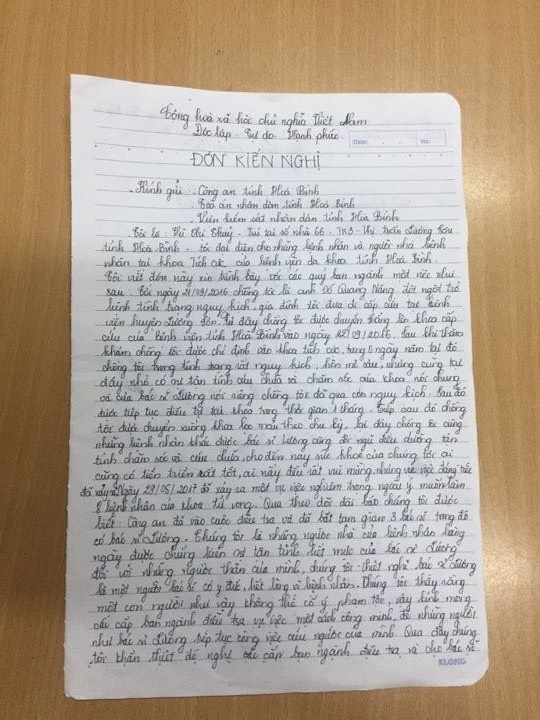 Cộng hoà xã hội chủ nghĩa Việt Nam
Độc lập - Tự do - Hạnh phúc
Date: No:
ĐƠN KIẾN NGHỊ
Kính gửi - Công an tỉnh Hoà Bình
- Toà án nhân dân tỉnh Hoà Bình
- Viện kiểm sát nhân dân tỉnh Hoà Bình
Tôi là: Thị Thuý - Tại số nhà 66 - TK8 - Thị trấn Lương Sơn
tỉnh Hoà Bình - tôi đại diện cho những bệnh nhân và người nhà bệnh
nhân tại khoa Tích cực của bệnh viện đa khoa tỉnh Hoà Bình.
Tôi viết đơn này xin trình bày với các quý ban ngành một việc như
sau: ngày 21/09/2016 chồng tôi là anh Đỗ Quang Năng đột ngột trở
bệnh tình trạng nguy kịch, gia đình tôi đưa đi cấp cứu tại bệnh
viện huyện Lương Sơn. Từ đây chồng tôi được chuyển thẳng lên khoa cấp
cứu của bệnh viện tỉnh Hoà Bình vào ngày 22/09/2016. Sau khi thăm
khám chồng tôi được chỉ định vào khoa tích cực, trong 5 ngày nằm tại đó
chồng tôi trong tình trạng rất nguy kịch, hôn mê sâu, nhưng cũng tại
đây nhờ có sự tận tình cứu chữa và chăm sóc của khoa nói chung
và của bác sĩ Lương nói riêng chồng tôi đã qua cơn nguy kịch. Sau đó
được tiếp tục điều trị tại khoa trong thời gian 1 tháng. Tiếp sau đó chồng
tôi được chuyển xuống khoa lọc máu theo chu kỳ, tại đây chồng tôi cùng
những bệnh nhân khác được bác sĩ Lương cùng đội ngũ điều dưỡng tận
tình chăm sóc và cứu chữa, cho đến nay sức khoẻ của chồng tôi
cũng có tiến triển rất tốt, ai nấy đều rất vui mừng, nhưng
đã xảy ra ngày 29/05/2017 đã xảy ra một vụ việc nghiêm trọng ngoài ý muốn làm
8 bệnh nhân của khoa tử vong. Qua theo dõi đài báo chúng tôi được
biết: Công an đã vào cuộc điều tra và đã bắt tạm giam 3 bác sĩ trong đó
có bác sĩ Lương. Chúng tôi là những người nhà của bệnh nhân hàng
ngày được chứng kiến sự tận tình hết mực của bác sĩ Lương
đối với những người thân của mình, chúng tôi thiết nghĩ bác sĩ Lương
là một người bác sĩ có y đức, hết lòng vì bệnh nhân. Chúng tôi thấy rằng
một con người như vậy không thể cố ý phạm tội, vậy kính mong
các cấp ban ngành điều tra vụ việc một cách công minh, để những người
như bác sĩ Lương tiếp tục công việc cứu người của mình. Qua đây chúng
tôi khẩn thiết đề nghị các cấp ban ngành điều tra và cho bác sĩ
KLONG